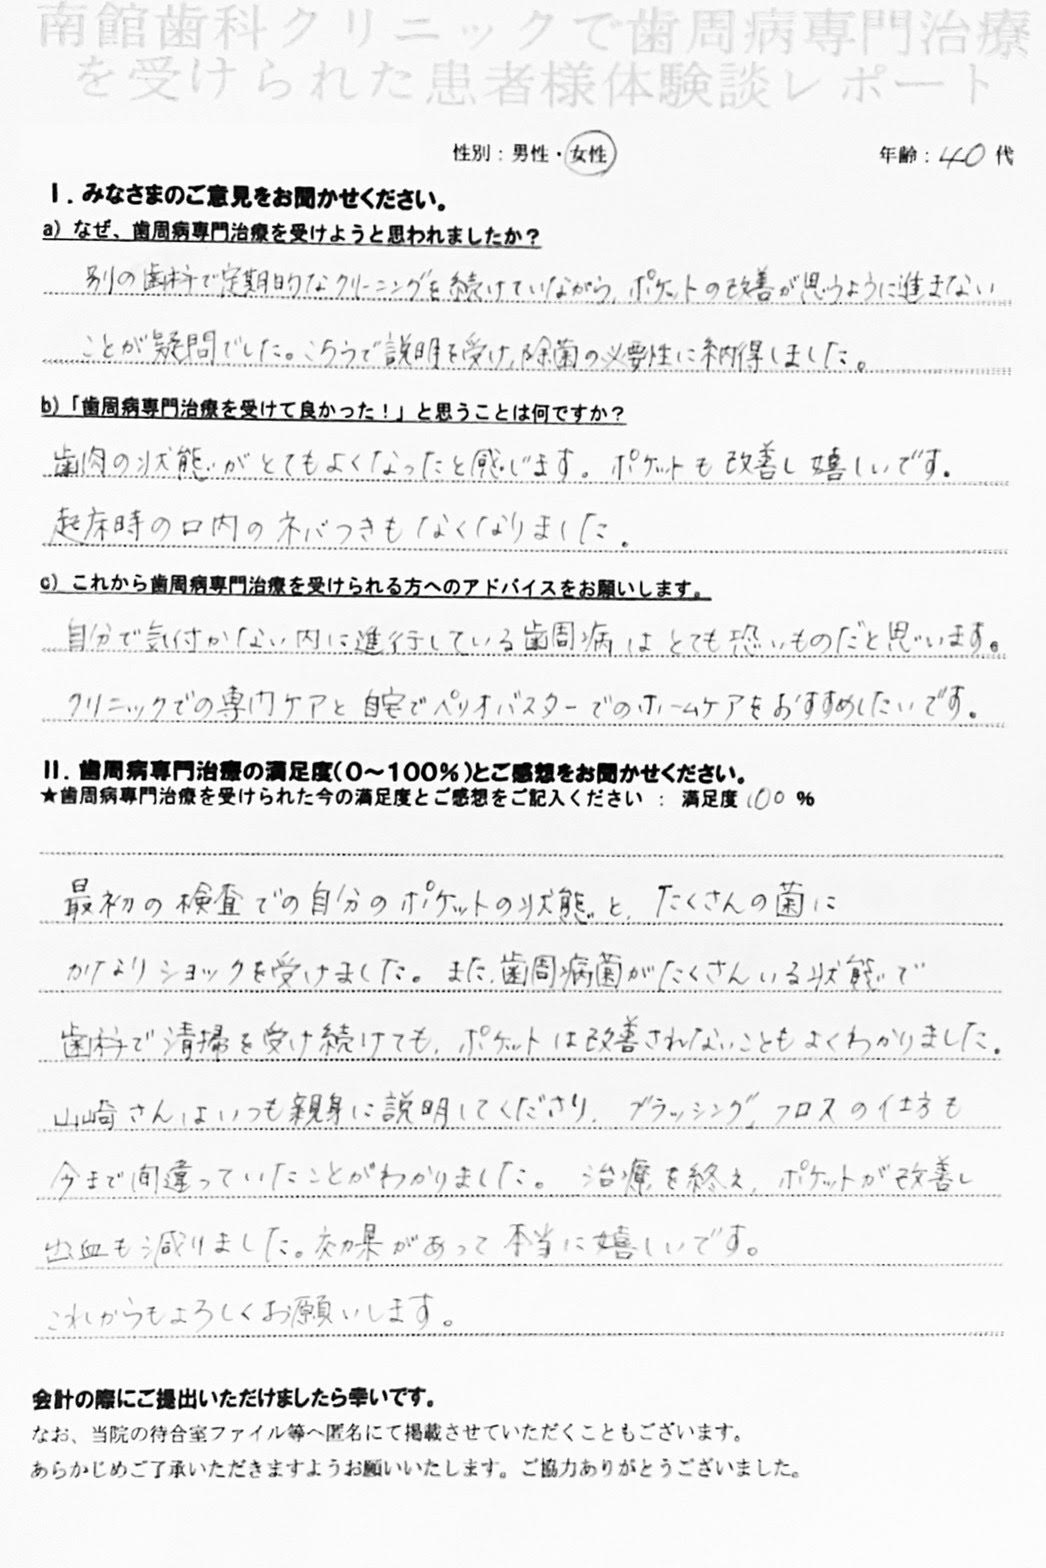 南館歯科クリニックで歯周病専門治療
を受けられた患者様体験談レポート
性別：男性・女性 年齢：40代
Ⅰ．みなさまのご意見をお聞かせください。
a）なぜ、歯周病専門治療を受けようと思われましたか？
別の歯科で定期的なクリーニングを続けていながら、ポケットの改善が思うように進まない
ことが疑問でした。こちらで説明を受け、除菌の必要性に納得しました。
b）「歯周病専門治療を受けて良かった！」と思うことは何ですか？
歯肉の状態がとてもよくなったと感じます。ポケットも改善し嬉しいです。
起床時の口内のネバつきもなくなりました。
c）これから歯周病専門治療を受けられる方へのアドバイスをお願いします。
自分で気付かない内に進行している歯周病はとても恐いものだと思います。
クリニックでの専門ケアと自宅でペリオバスターでのホームケアをおすすめしたいです。
Ⅱ．歯周病専門治療の満足度（0～100％）とご感想をお聞かせください。
★歯周病専門治療を受けられた今の満足度とご感想をご記入ください ： 満足度 100 ％
最初の検査での自分のポケットの状態と、たくさんの菌に
かなりショックを受けました。また、歯周病菌がたくさんいる状態で
歯科で清掃を受け続けても、ポケットは改善されないこともよくわかりました。
山崎さんはいつも親身に説明してくださり、ブラッシング、フロスの仕方も
今まで間違っていたことがわかりました。治療を終え、ポケットが改善し
出血も減りました。効果があって本当に嬉しいです。
これからもよろしくお願いします。
会計の際にご提出いただけましたら幸いです。
なお、当院の待合室ファイル等へ匿名にて掲載させていただくこともございます。
あらかじめご了承いただきますようお願いいたします。ご協力ありがとうございました。